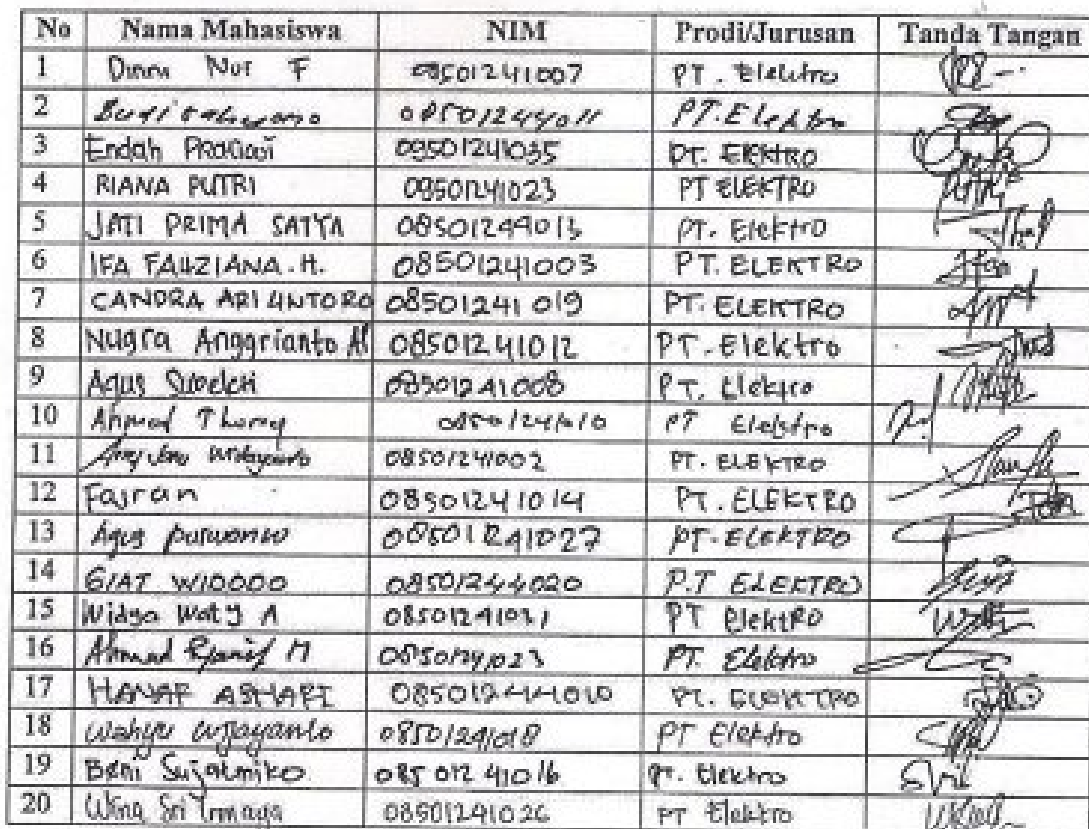 No Nama Mahasiswa NIM Prodi/Jurusan Tanda Tangan
1 Dinna Nur F 08501241007 PT. Elektro
2 Budi 08501244011 PT. Elektro
3 Endah 09501241035 PT. ELEKTRO
4 RIANA PUTRI 09501241023 PT ELEKTRO
5 JATI PRIMA SATYA 08501244013 PT. ElektrO
6 IFA FAUZIANA. H. 08501241003 PT. ELEKTRO
7 CANDRA ARI ANTORO 08501241019 PT. ELEKTRO
8 Nugra Anggrianto 08501241012 PT. Elektro
9 Agus 08501241008 PT. Elektro
10 Ahmad 08501241010 PT Elektro
11 08501241002 PT. ELEKTRO
12 Fajran 08501241014 PT. ELEKTRO
13 Agus purwanto 08501241027 PT. ELEKTRO
14 GIAT WIDODO 08501244020 P.T ELEKTRO
15 Widya Waty A 08501241031 PT ElektRO
16 Ahmad M PT. Elektro
17 HANAF ASHARI 08501244010 PT. ELEKTRO
18 Wahyu Wijayanto 08501241018 PT Elektro
19 Beni Sujatmiko 08501241016 PT. Elektro
20 Wina Sri 08501241026 PT Elektro